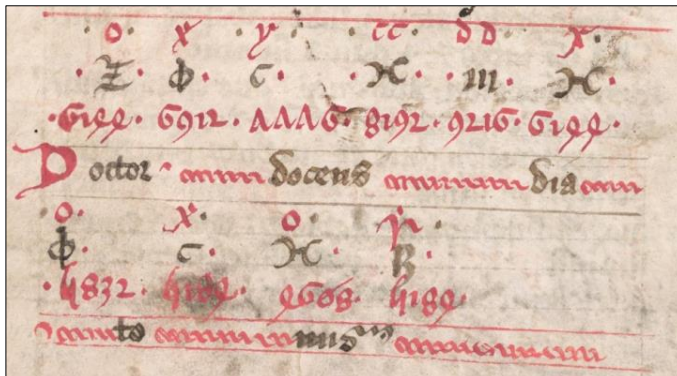 · o · x · y · cc · dd · x ·
· Z · Φ · C · · m ·
· 6144 · 6912 · 7776 · 8192 · 9216 · 6144 ·
Doctor docens dia
· o · x · o ·
Φ · C · · B ·
· 5832 · 5184 · 4608 · 5184 ·
to nus